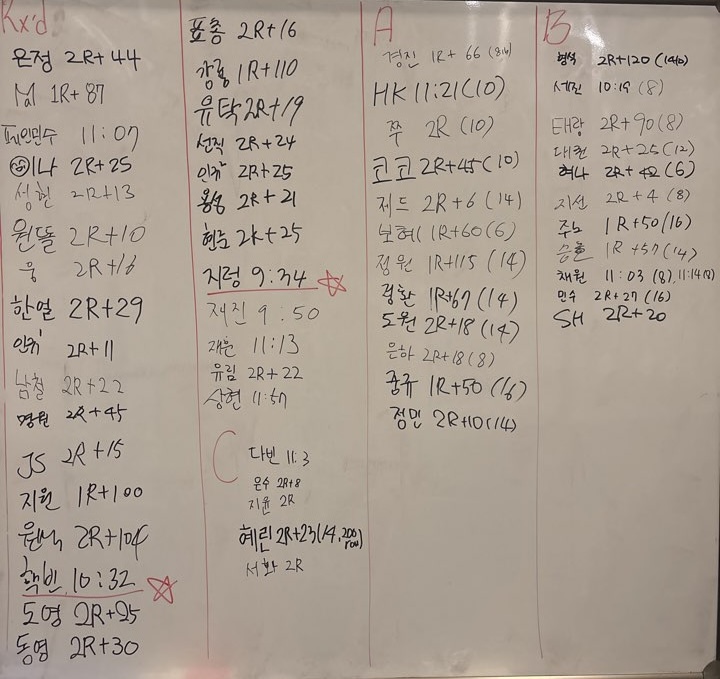 Rx'd
은정 2R+44
1R+87
프레인민수 11:07
이나 2R+25
성현 2R+13
원똘 2R+10
웅 2R+16
한얼 2R+29
인귀 2R+11
남철 2R+22
명원 2R+45
JS 2R+15
지원 1R+100
2R+104
핵빈 10:32
도영 2R+25
동영 2R+30
표총 2R+16
강룡 1R+110
유탁 2R+19
선직 2R+24
2R+25
용성 2R+21
현눈 2R+25
지렁 9:34
재진 9:50
재훈 11:13
유림 2R+22
상현 11:57
C
다빈 11:3
은수 2R+8
지윤 2R
혜린 2R+23(14,200 row)
서화 2R
A
경진 1R+66
HK 11:21(10)
쭈 2R (10)
코코 2R+45(10)
제드 2R+6 (14)
보혜 1R+60(6)
정원 1R+115 (14)
정환 1R+67 (14)
도원 2R+18 (14)
은하 2R+18(8)
중규 1R+50 (16)
정민 2R+10(14)
B
형석 2R+120
세진 10:19 (8)
태랑 2R+90(8)
대권 2R+25(12)
혁나 2R+42(6)
지선 2R+4 (8)
주노 1R+50(16)
승호 1R+57(14)
채원 11:03 (8), 11:14
민수 2R+27 (16)
SH 2R+20